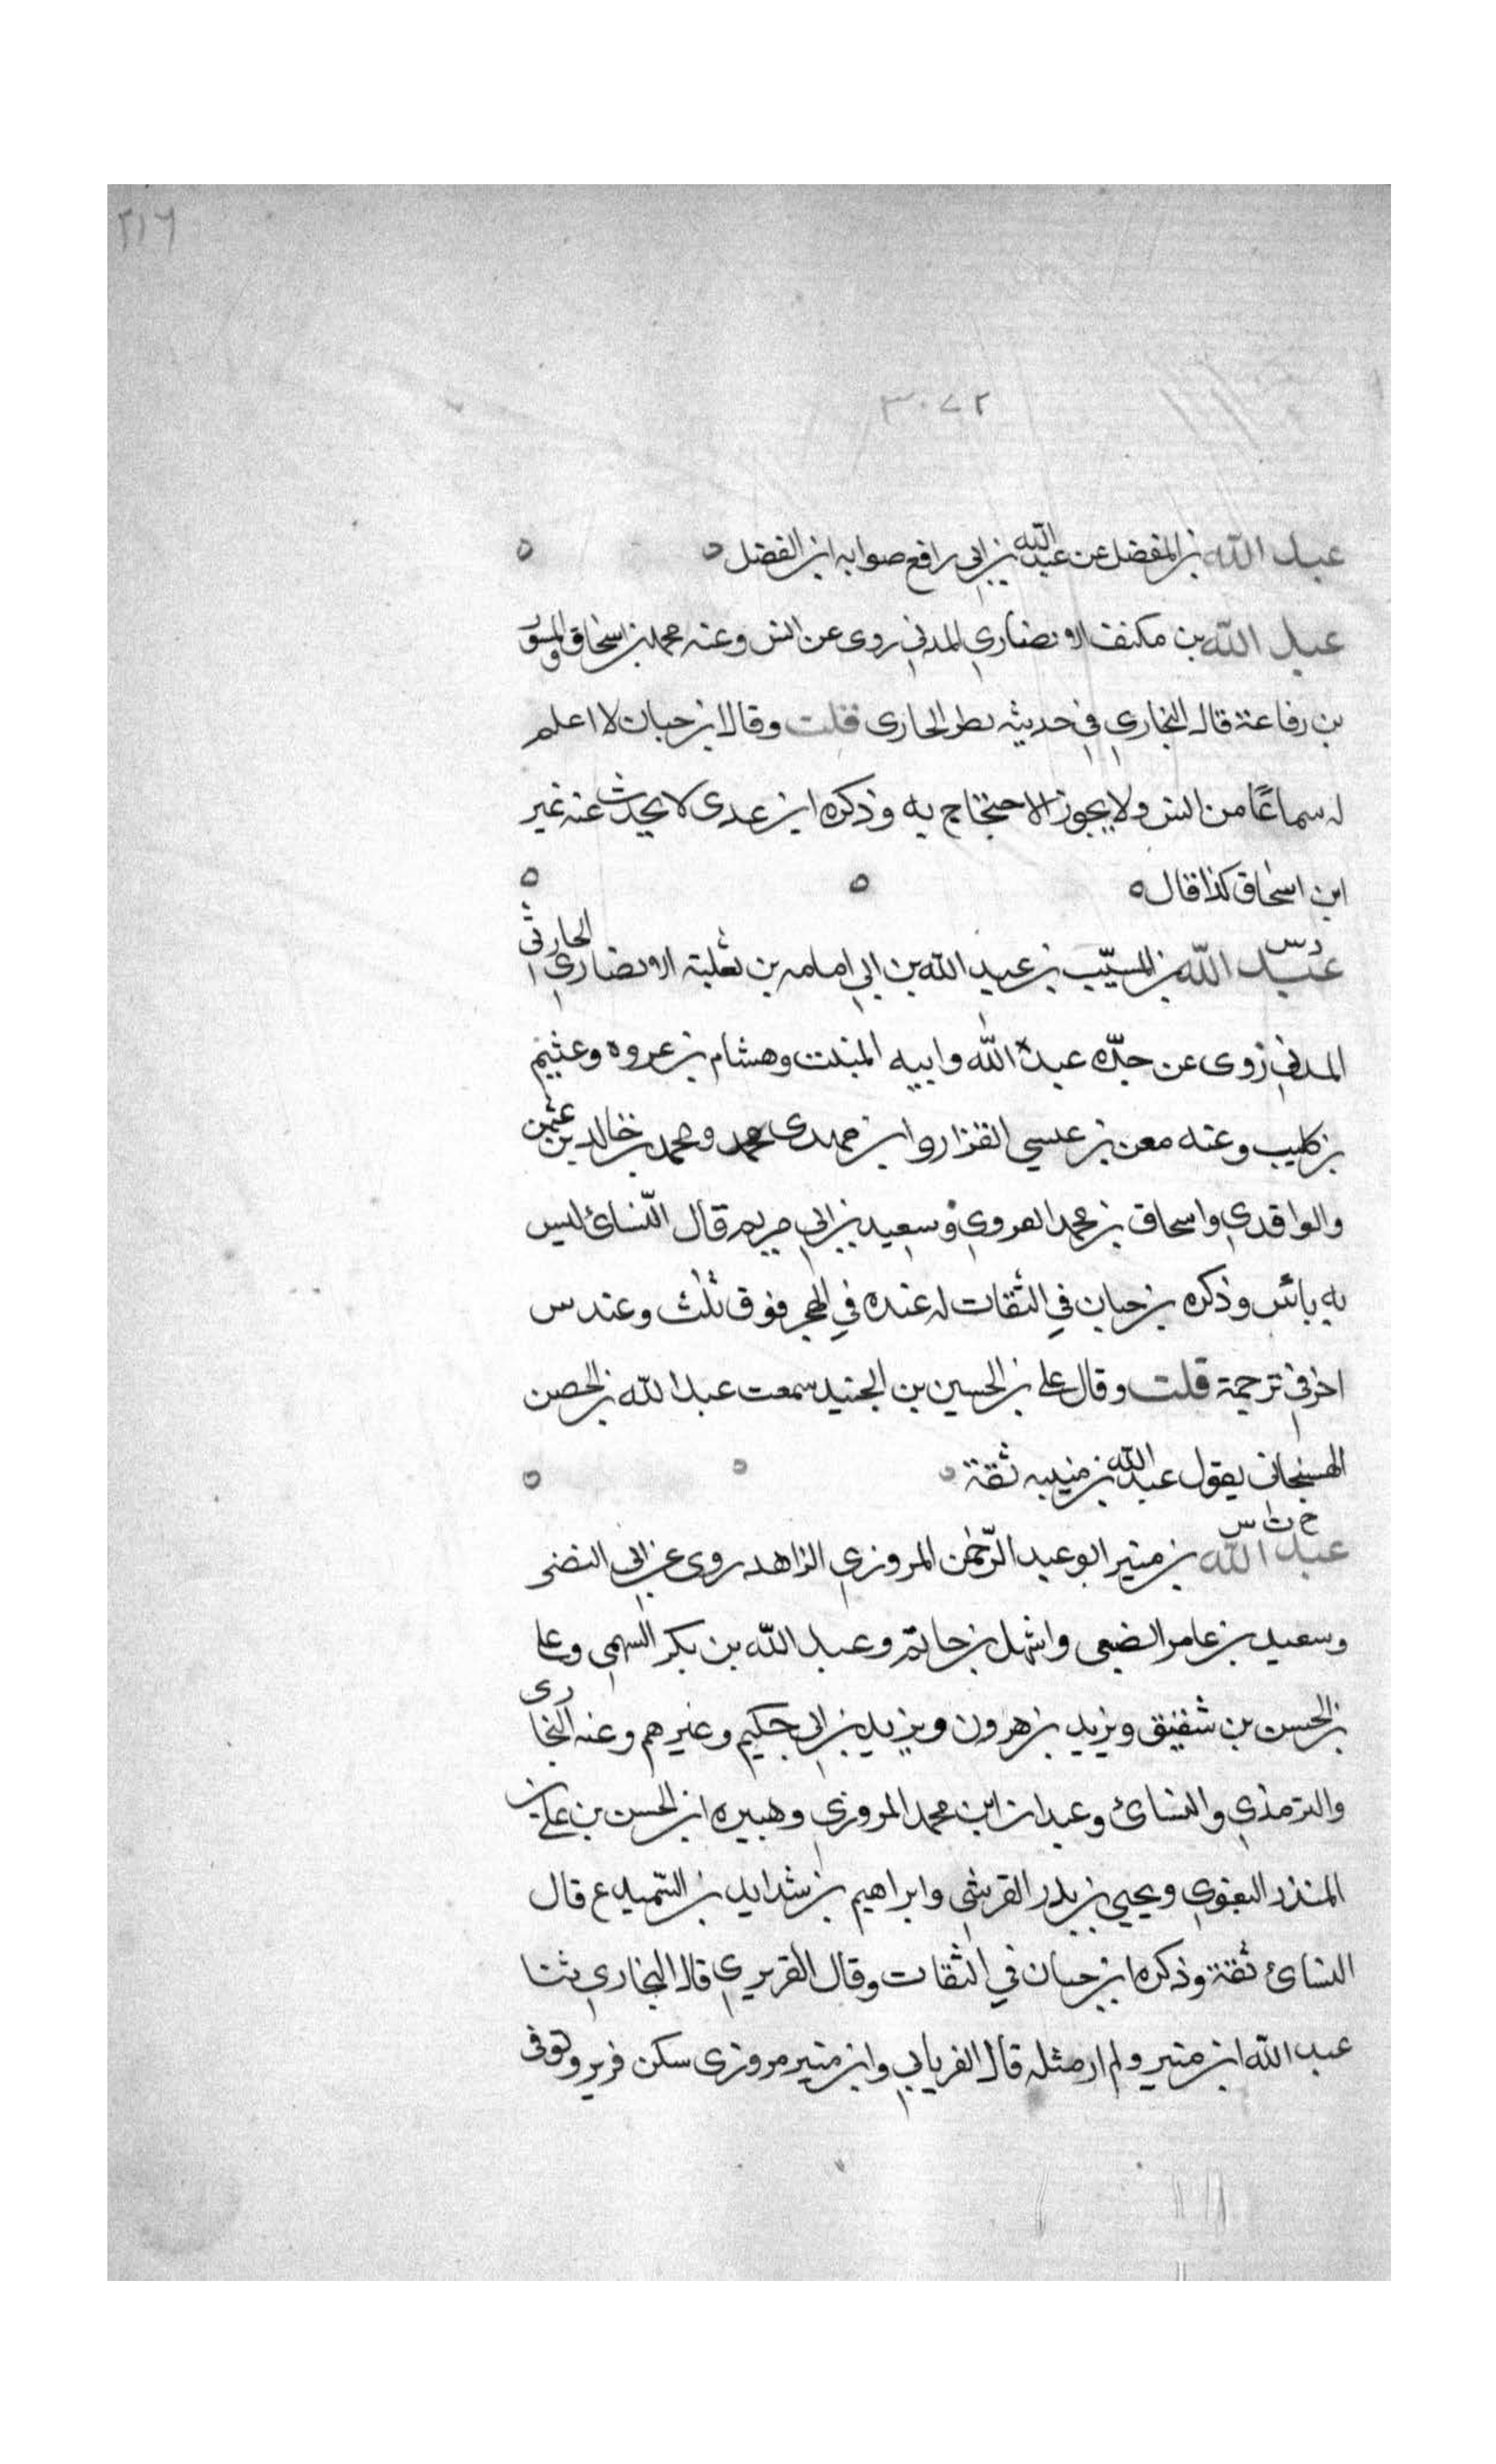 ٢١٦
٣٠٧٢
عبد الله بن المفضل عن عبد الله بن ابي رافع صوابه ابن الفضل ه ه
عبد الله بن مكنف الانصاري المدني روى عن انس وعنه محمد بن اسحاق والمسور
بن رفاعة قال البخاري في حديثه نظر الحارى قلت وقال ابن حبان لا اعلم
له سماعًا من انس ولا يجوز الاحتجاج به وذكره ابن عدى لا يحدث عنه غير
ابن اسحاق كذا قال ه ه ه
د س
عبد الله بن المسيّب بن عبد الله بن ابي امامه بن ثعلبة الانصاري الحارثي
المدني روى عن جدّه عبد الله وابيه المنيب وهشام بن عروه وعثيم
بن كليب وعنه معن بن عيسي القزاز وابن مهدى محمد ومحمد بن خالد بن عثمن
والواقدي واسحاق بن محمد العروي وسعيد بن ابي مريم قال النّسائ ليس
به بائس وذكره بن حبان في الثقات له عنده في الهجر فوق ثلث وعند س
اخر في ترجمة قلت وقال علي بن الحسين بن الجنيد سمعت عبد الله بن الحصن
الهسنجاني يقول عبد الله بن منيب ثقة ه ه ه
خ ت س
عبد الله بن منير ابو عبد الرّحمٰن المروزي الزاهد روى عن ابي النضر
وسعيد بن عامر الضبعى واشهل بن حاتم وعبد الله بن بكر السهمي وعلى
بن الحسن بن شقيق ويزيد بن هرون ويزيد بن ابي حكيم وغيرهم وعنه البخارى
والترمذي والنسائ وعبدان ابن محمد المروزي وهبيره ابن الحسن بن علي بن
المنذر البغوي ويحيى بن بدر القرشي وابراهيم بن شدايد بن السّميدع قال
النسائ ثقة وذكره ابن حبان في الثقات وقال القربري قال البخاري ثنا
عبد الله ابن منير ولم ار مثله قال الفريابي وابن منير مروزى سكن فربر وتوفى